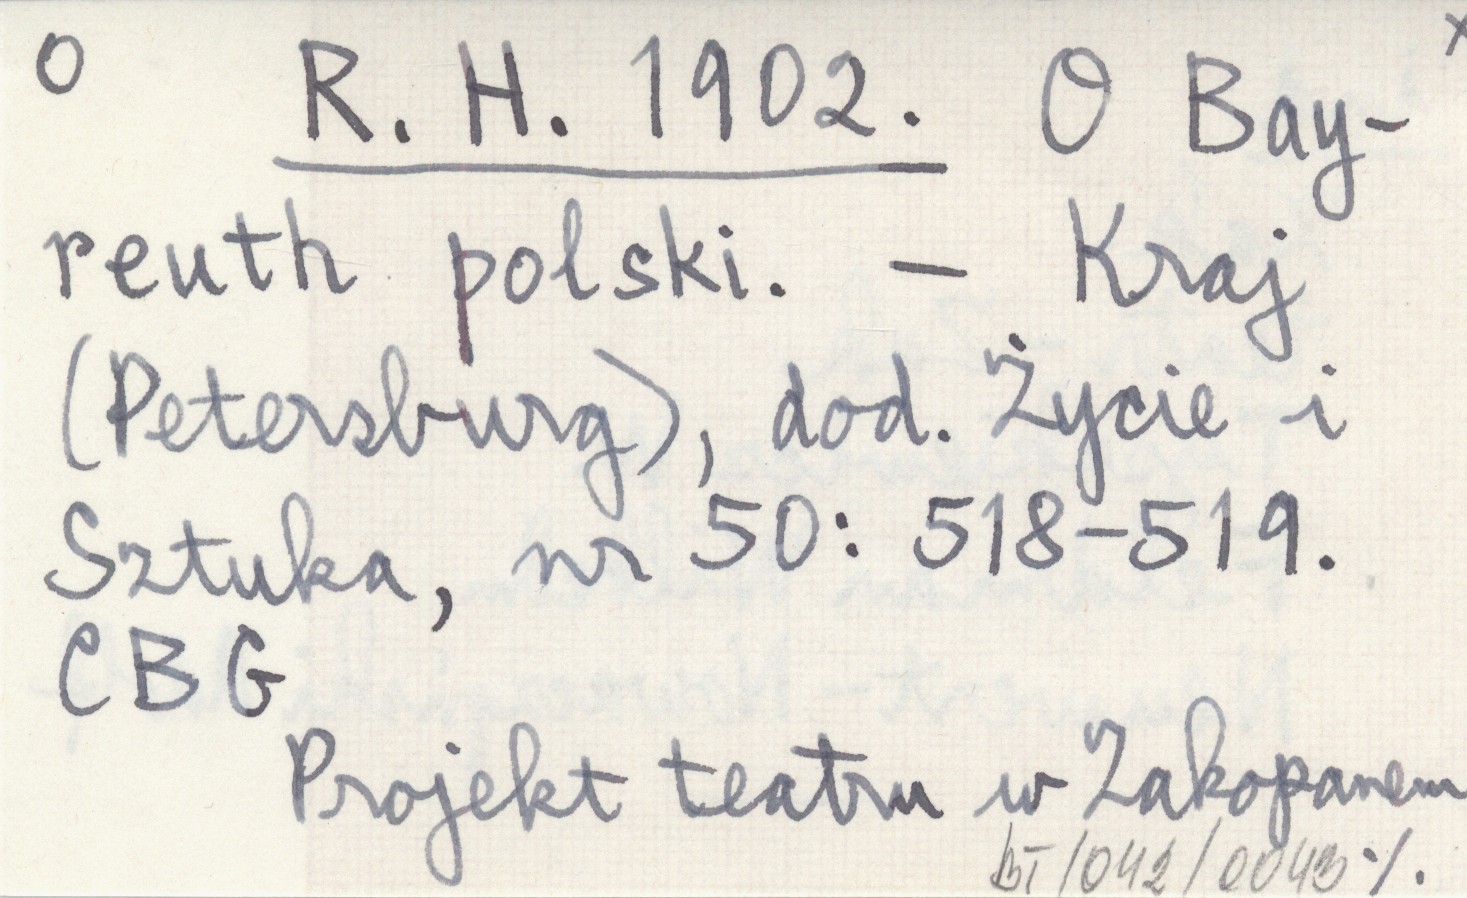 O R. H. 1902. O Bay- x
reuth polski. — Kraj
(Petersburg), dod. Życie i
Sztuka, nr 50: 518-519.
CBG
Projekt teatru w Zakopanem
BT/042/0043